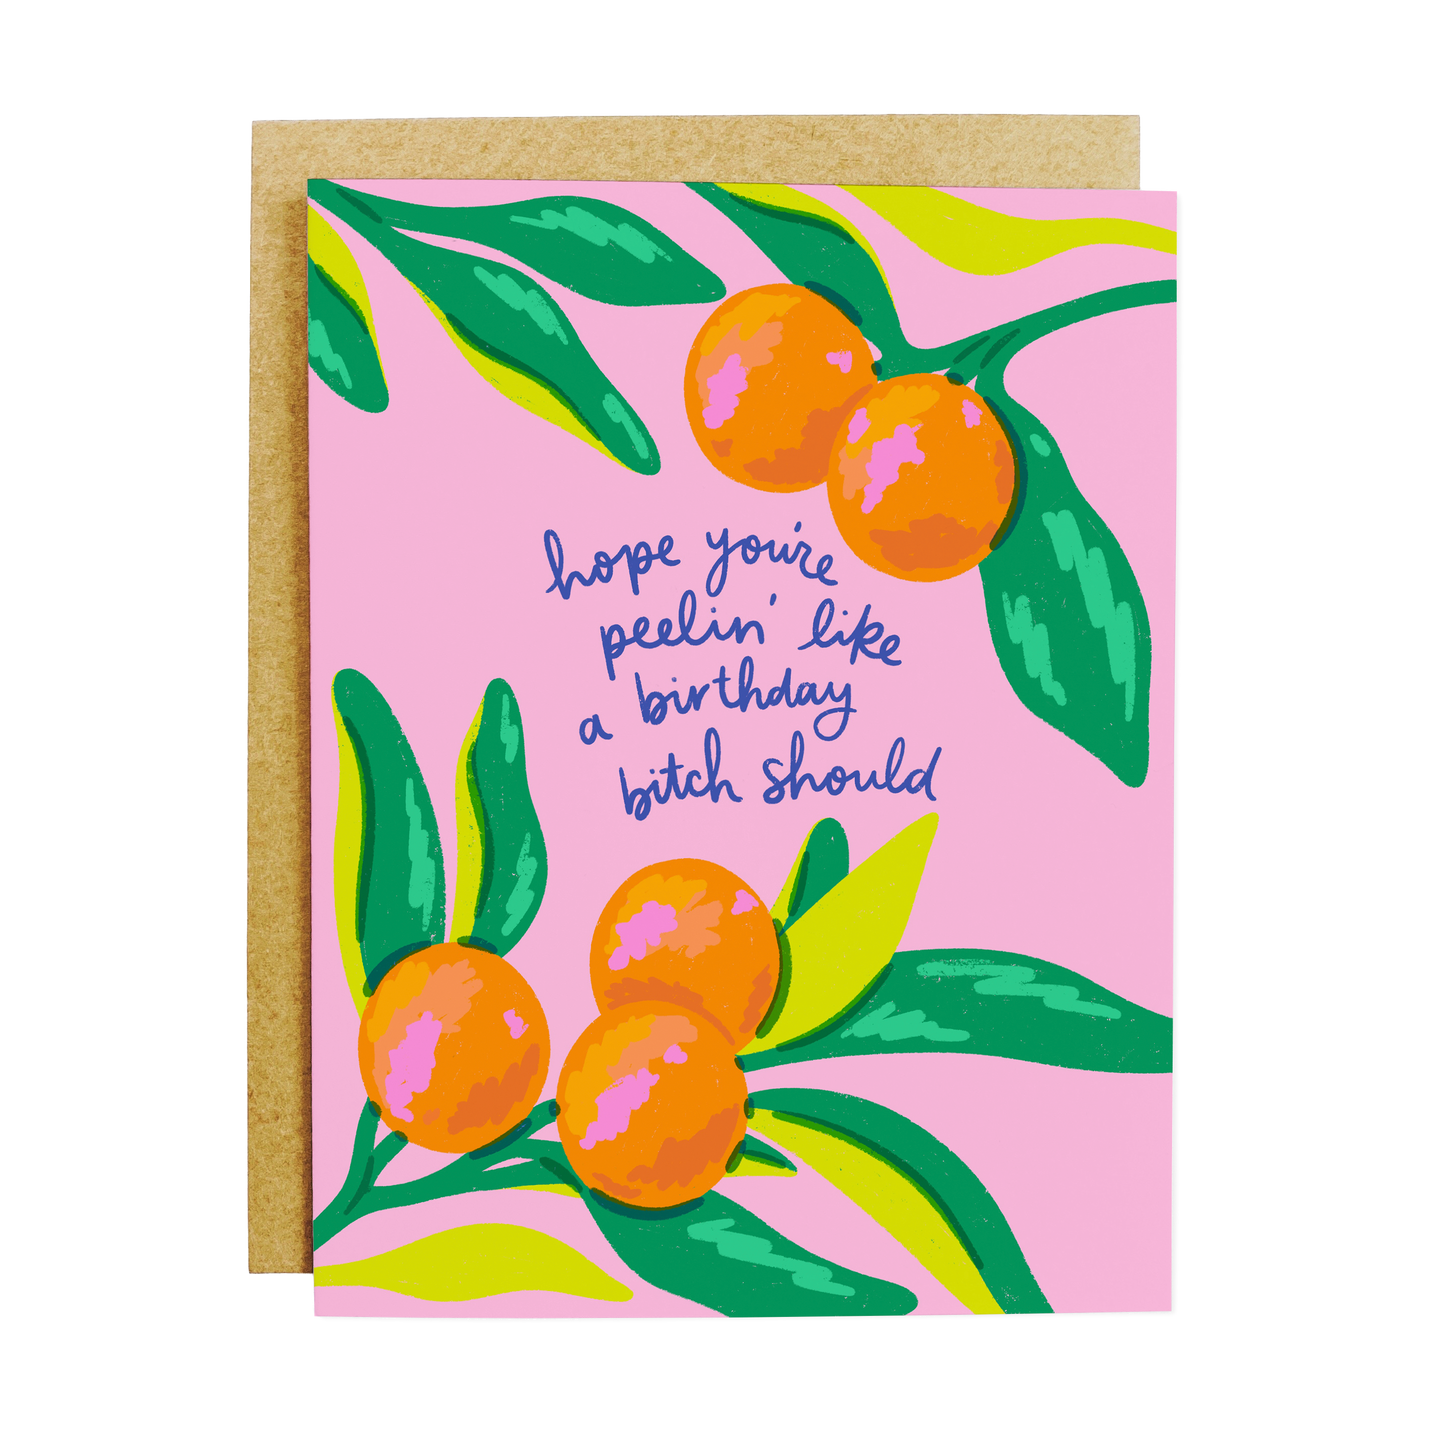 hope you're
peelin' like
a birthday
bitch should